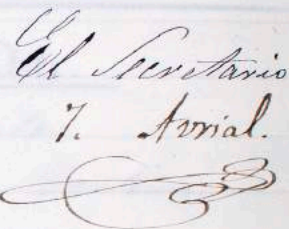 El Secretario
J. Avrial.